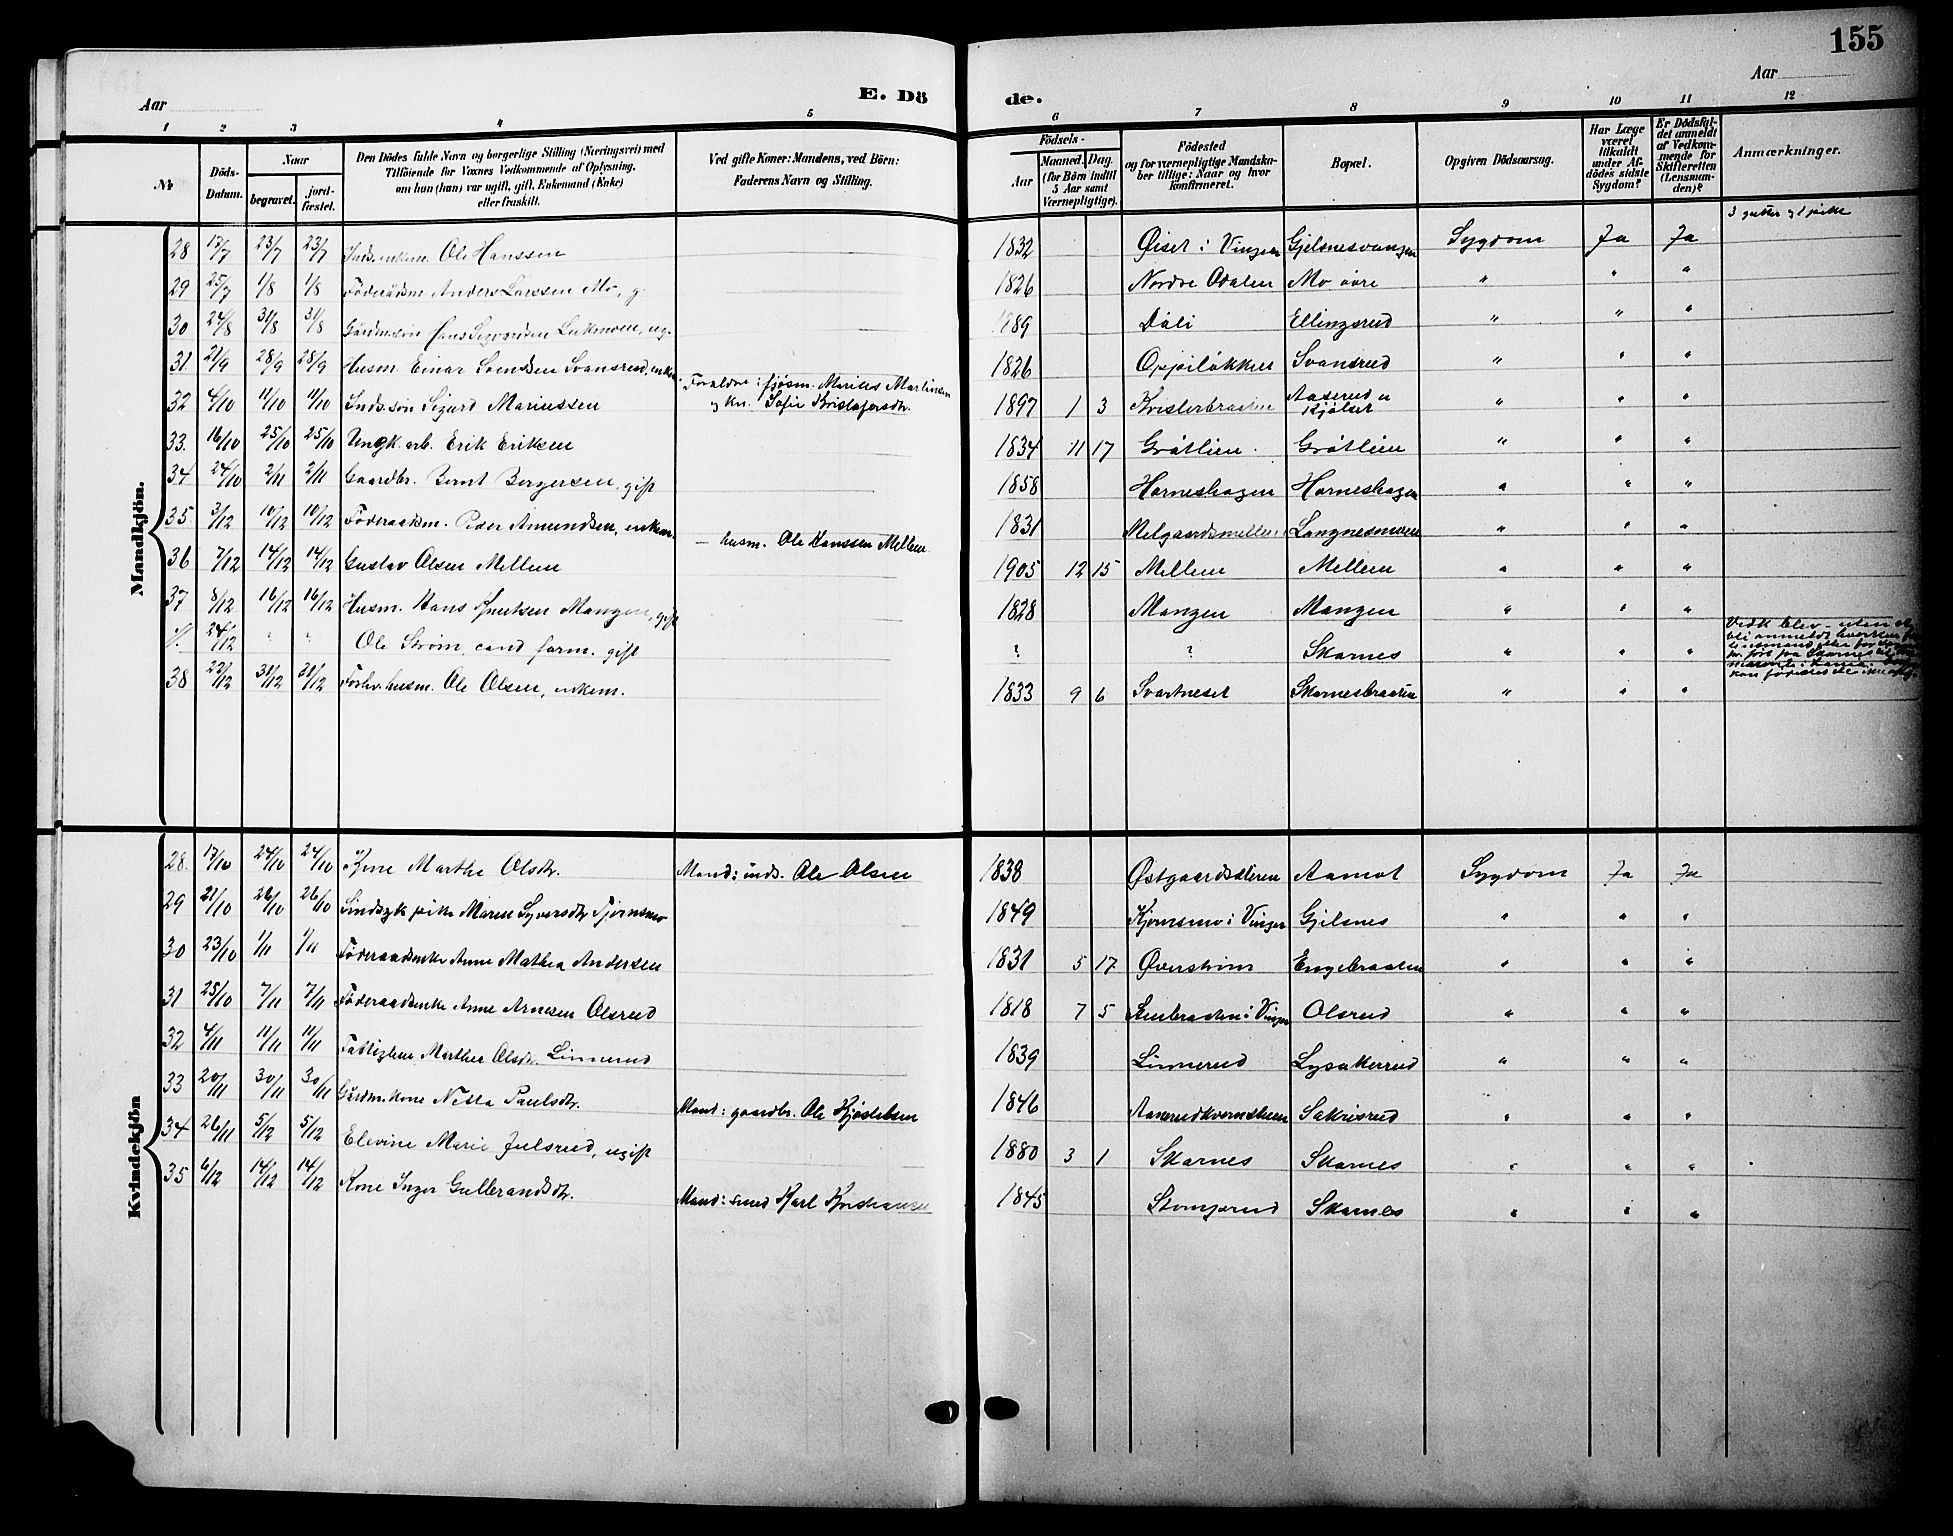 155
Aar
Aar
E. Dö
de.
1 2 3 4 5 6 7 8 9 10 11 12
No
Döds-
Datum.
Naar
begravet.
jord-
fæstet.
Den Dödes fulde Navn og borgerlige Stilling (Næringsvei) med
Tilföiende for Voxnes Vedkommende af Oplysning,
om hun (han) var ugift, gift, Enkemand (Enke)
eller fraskilt.
Ved gifte Koner: Mandens, ved Börn:
Faderens Navn og Stilling.
Födsels-
Aar
Maaned. Dag.
(for Börn indtil
5 Aar samt
Værnepligtige).
Födested
og for værnepligtige Mandska-
ber tillige: Naar og hvor
konfirmeret.
Bopæl.
Opgiven Dödsaarsag.
Har Læge
været
tilkaldt
under Af-
dödes sidste
Sygdom?
Er Dödsfal-
det anmeldt
af Vedkom-
mende for
Skifteretten
(Lensman-
den)?
Anmærkninger.
Mandkjön.
3 gutter og 1 pike
28 17/7 23/7 23/7 Inds. enkem. Ole Hanssen 1832 Øiset i Vinger Gjelsnesvangen Sygdom Ja Ja
29 25/7 1/8 1/8 Föderådsm. Anders Larssen Mo, g. 1826 Nordre Odalen Mo övre " " "
30 24/8 31/8 31/8 Gårdm.sön Hans Sigvardsen ug. 1889 Dåli Ellingsrud " " "
31 21/9 28/9 28/9 Husm. Einar Svendsen Svansrud, enkem. 1826 Oppilökken Svansrud " " "
32 4/10 11/10 11/10 Inds. sön Sigurd Mariussen Foraldre: Marius Martinsen
og kn. Sofie Kristofersdr. 1897 1 3 Kristerbraaten Aaserud u
Kjölset " " "
33. 16/10 25/10 25/10 Ungk. arb. Erik Eriksen 1834 11 17 Gråtlien. Gråtlien " " "
34 24/10 2/11 2/11 Gaardbr. Bernt Bergersen, gift 1858 Horneshagen Horneshagen " " "
35 3/12 10/12 10/12 Föderaadsm. Peder Amundsen, enkem. 1831 Melgaardsmellem Langnesmoen " " "
36 7/12 14/12 14/12 Gustav Olsen Mellem – husm. Ole Hanssen Mellem 1905 12 15 Mellem Mellem " " "
37 8/12 16/12 16/12 Husm. Hans Knutsen Mangen, gift 1828 Mangen Mangen " " "
24/12 ? ? Ole Strøm, cand farm. gift ? ? Skarnes " " "
38 22/12 31/12 31/12 Forhv. husm. Ole Olsen, enkem. 1833 9 6 Svartneset Skarnesbraaten " " "
Kvindekjön
28. 17/10 24/10 24/10 Kone Marthe Olsdtr. Mand: inds. Ole Olsen 1838 Østgaardsæteren Aamot Sygdom Ja Ja
29 21/10 26/10 26/10 Sindssyk pike Maren Syversdtr Tjernsmo 1849 Kjernsmo i Vinger Gjelsnes " " "
30 23/10 1/11 1/11 Föderaadsenke Anne Mathea Andersen 1831 5 17 Øverström Engebraaten " " "
31 25/10 7/11 7/11 Föderaadsenke Anne Arnesen Olsrud 1818 7 5 i Vinger Olsrud " " "
32 4/11 11/11 11/11 Fattiglem Marthea Olsdtr. Linnerud 1839 Linnerud Lysakerrud " " "
33 20/11 30/11 30/11 Gårdm.kone Netta Paulsdtr. Mand: gaardbr. Ole Kjöstelsen 1846 Aaserudkvernstuen Sakrisrud " " "
34 26/11 5/12 5/12 Elevine Marie Julsrud, ugift 1880 3 1 Skarnes Skarnes " " "
35 6/12 14/12 14/12 Kone Inger Gulbrandsdtr. Mand: smed Karl Kristiansen 1845 Stomperud Skarnes " " "